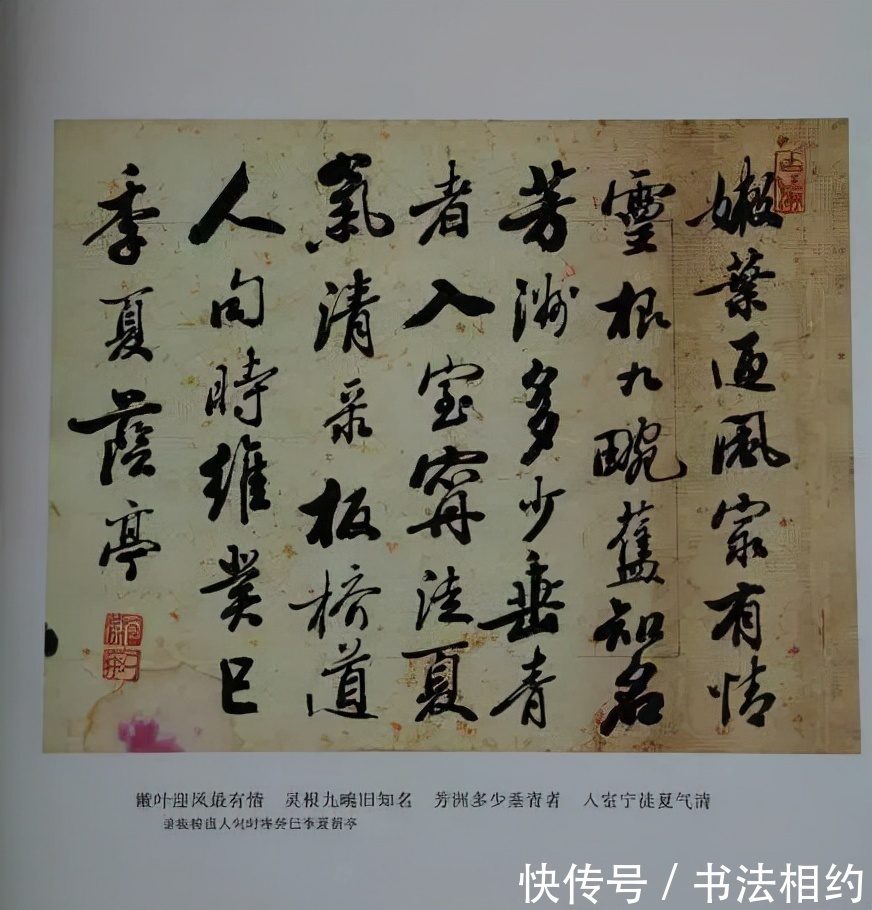 嫩葉迎風最有情
靈根九畹舊知名
芳洲多少垂青
者入室寧徒夏
氣清录板橋道
人句時維癸巳
季夏蔭亭
嫩叶迎风最有情 灵根九畹旧知名 芳洲多少垂青者 人室宁徒夏气清
录板桥道人句时维癸巳季夏荫亭
快传号 / 书法相约